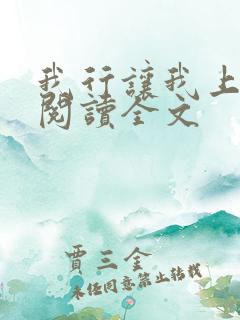 我行讓我上
閱讀全文
賈三金
未任同意禁止轉載